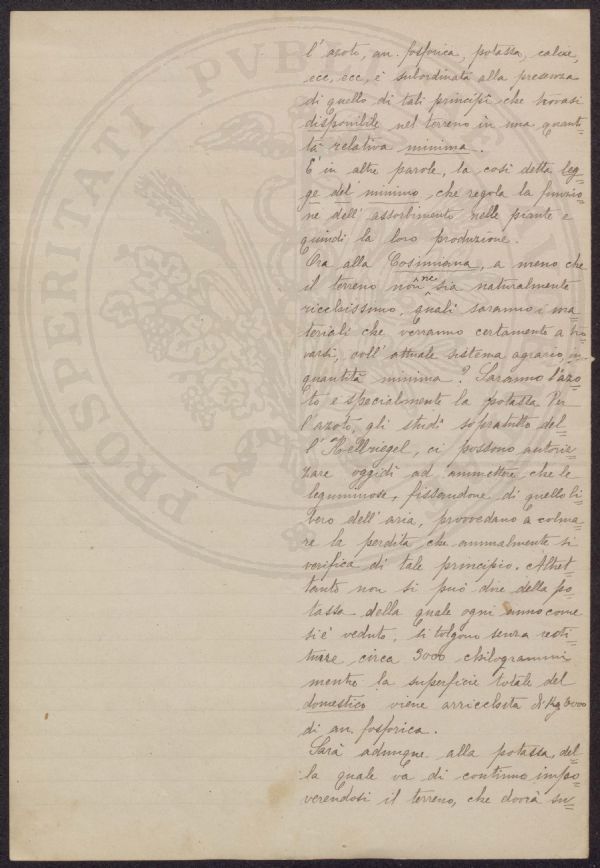 l'azoto, an. fosforica, potassa, calce,
ecc, ecc, è subordinata alla presenza
di quello di tali principî che trovasi
disponibile nel terreno in una quanti=
tà relativa minima.
E' in altre parole, la così detta leg=
ge del minimo, che regola la funzio=
ne dell'assorbimento nelle piante e
quindi la loro produzione.
Ora alla Cosimiana, a meno che
il terreno non ne sia naturalmente
ricchissimo, quali saranno i ma=
teriali che verranno certamente a tro=
varsi, coll'attuale sistema agrario, in
quantità minima? Saranno l'azo=
to e specialmente la potassa. Per
l'azoto, gli studi sopratutto del=
l'Hellriegel, ci possono autoriz=
zare oggidì ad ammettere che le
leguminose, fissandone di quello li=
bero dell'aria, provvedano a colma=
re la perdita che annualmente si
verifica di tale principio. Altret=
tanto non si può dire della po=
tassa della quale ogni anno come
si è veduto, si tolgono senza resti=
tuire, circa 3000 chilogrammi
mentre la superficie totale del
domestico viene arricchita di Kg 3000
di an. fosforica.
Sarà adunque alla potassa, del=
la quale va di continuo impo=
verendosi il terreno, che dovrà su=
PROSPERITATI PVBLI